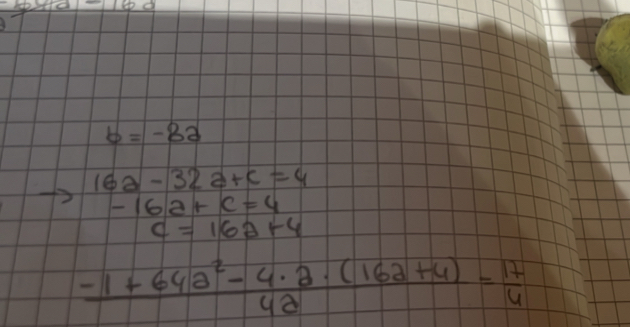 b = -8a
→ 16a - 32a + c = 4
-16a + c = 4
c = 16a + 4
\frac{-1 + 64a^2 - 4 \cdot a \cdot (16a + 4)}{4a} = \frac{17}{4}